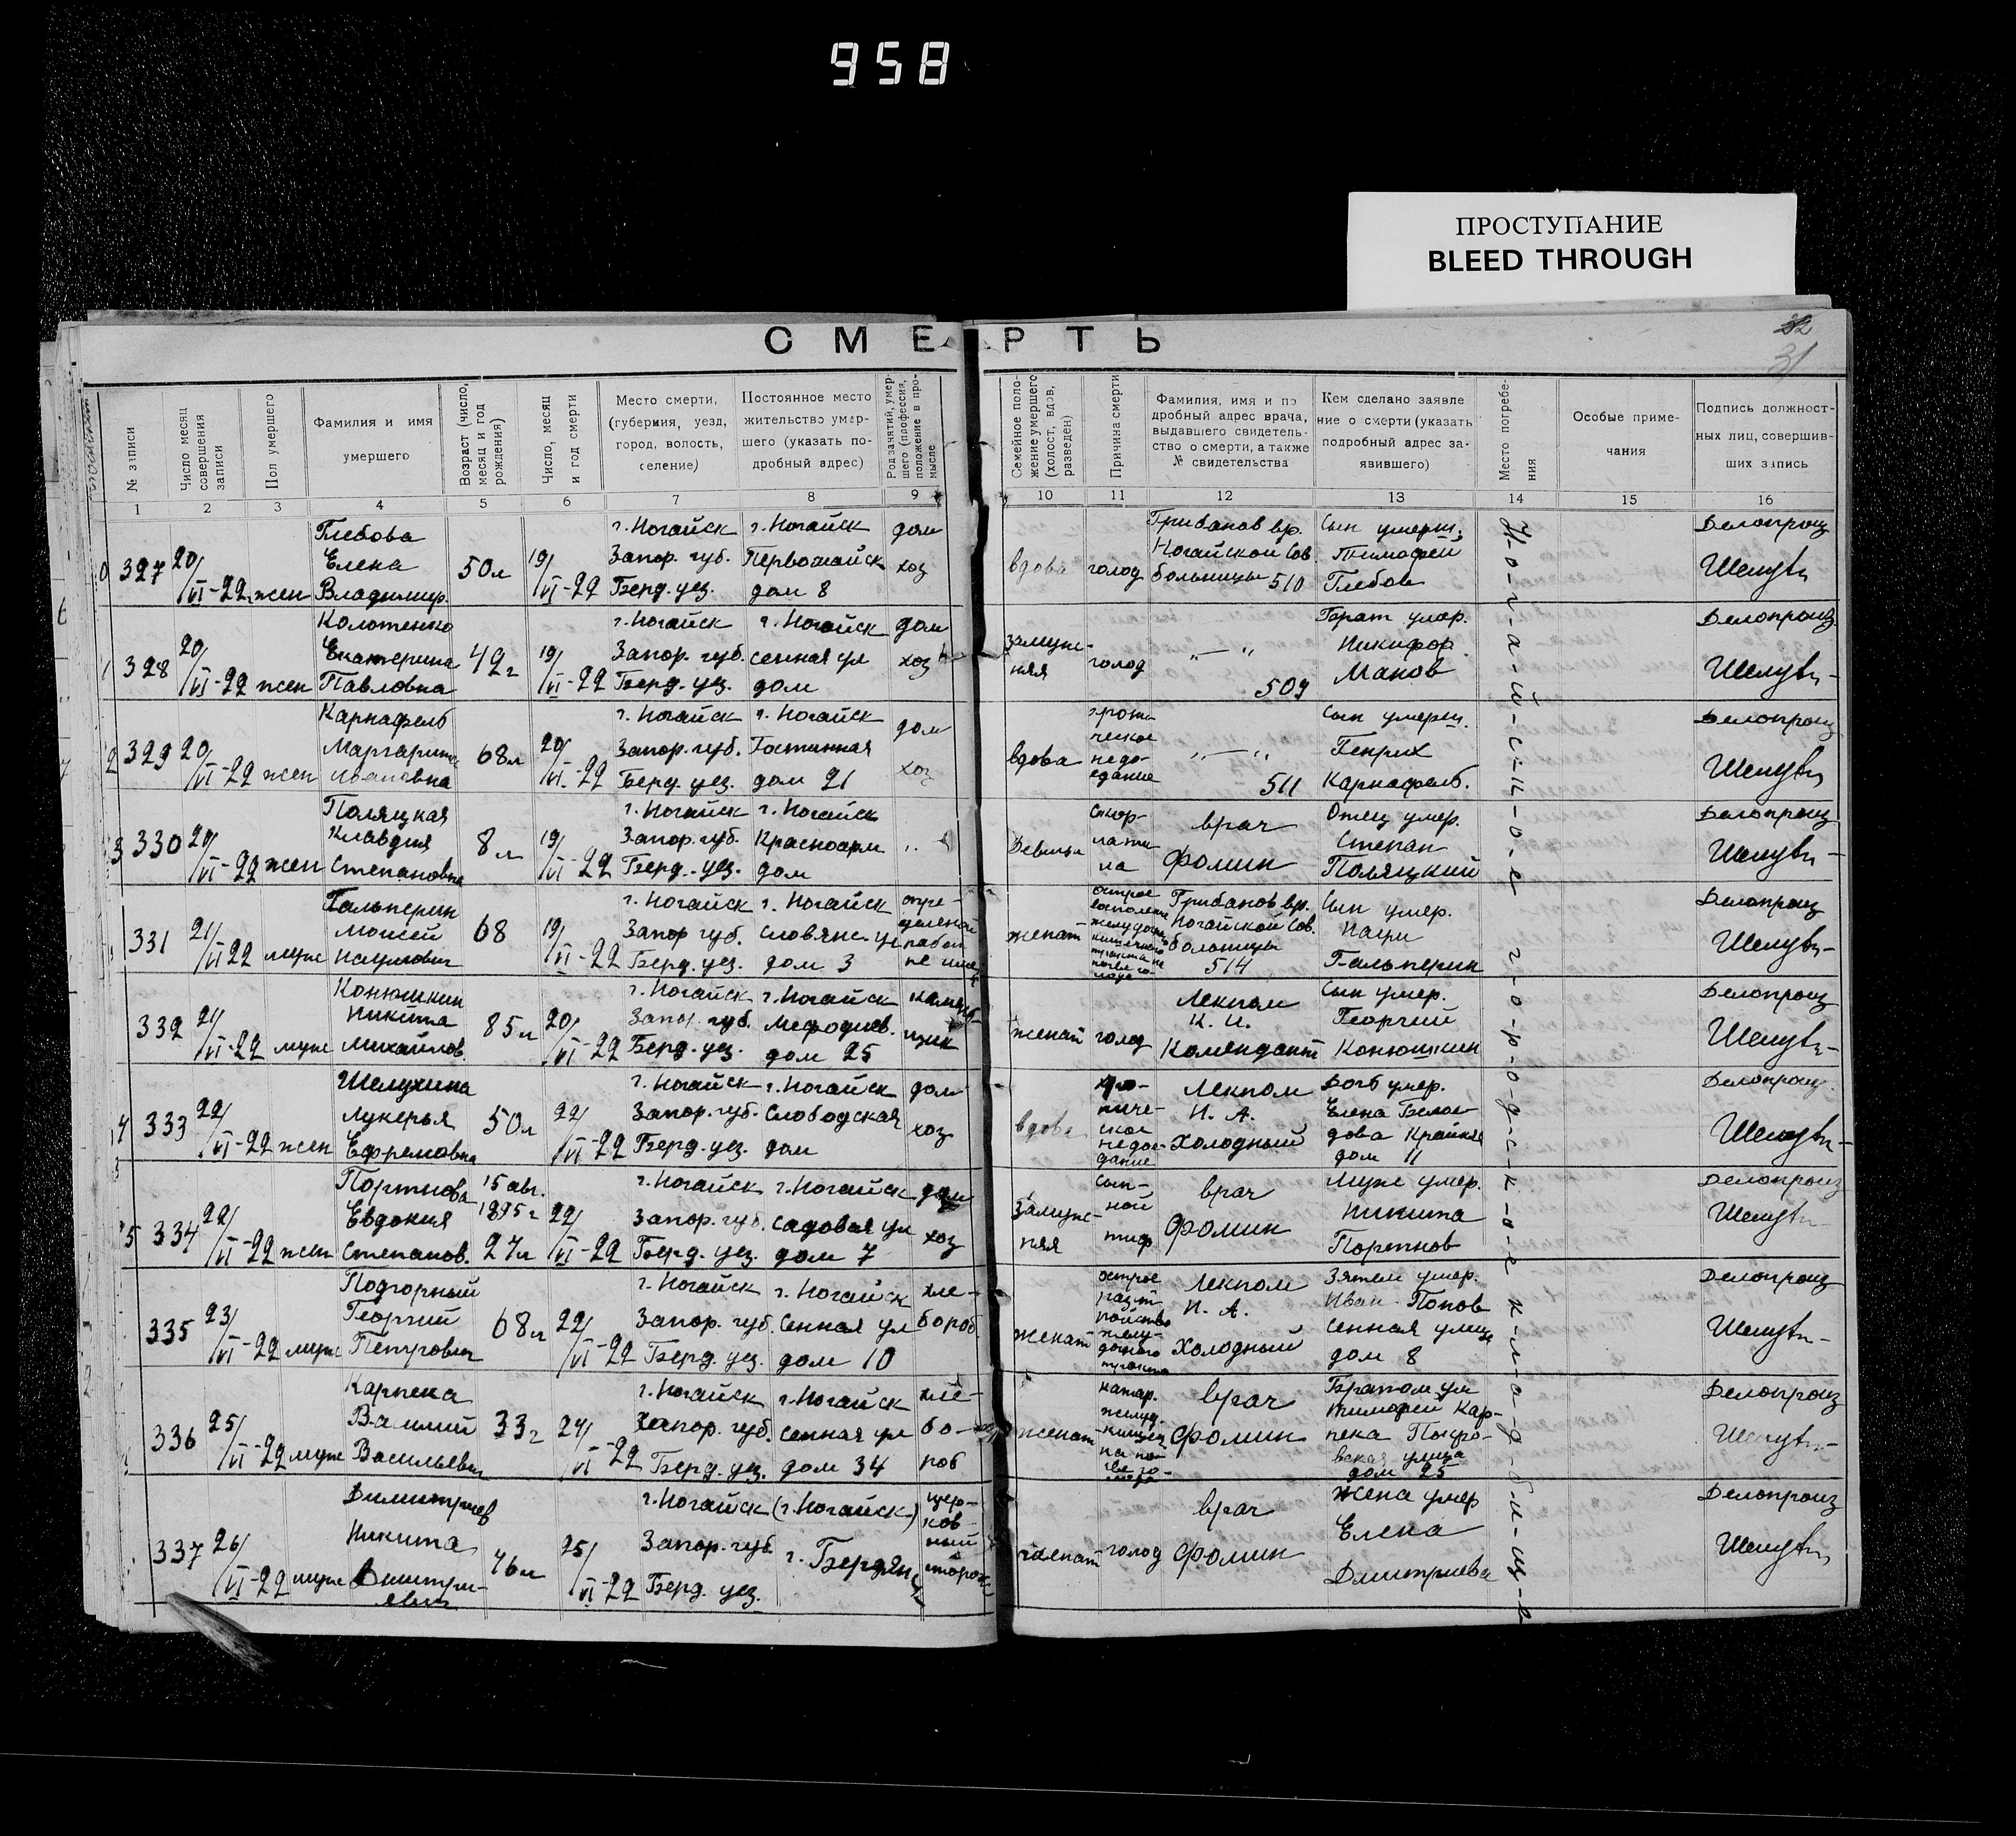 958
ПРОСТУПАНИЕ
BLEED THROUGH
СМЕРТЬ
32
31
№ записи
Число месяц совершения записи
Пол умершего
Фамилия и имя умершего
Возраст (число, месяц и год рождения)
Число, месяц и год смерти
Место смерти, (губерния, уезд, город, волость, селение)
Постоянное место жительство умершего (указать подробный адрес)
Род занятий, умершего (профессия, положение в промысле
Семейное положение умершего (холост, вдов, разведен)
Причина смерти
Фамилия, имя и подробный адрес врача, выдавшего свидетельство о смерти, а также № свидетельства
Кем сделано заявление о смерти (указать подробный адрес заявившего)
Место погребения
Особые примечания
Подпись должностных лиц, совершивших запись
1 2 3 4 5 6 7 8 9 10 11 12 13 14 15 16
327 20/VI-22 жен Глебова Елена Владимир. 50 л 19/VI-22 г. Ногайск Запор. губ. Берд. уез. г. Ногайск Первомайск дом 8 дом хоз вдова голод Грибанов вр. Ногайской Сов. больницы 510 Сын умерш. Тимофей Глебов Делопроиз
328 20/VI-22 жен Колотенко Екатерина Павловна 42 г 19/VI-22 г. Ногайск Запор. губ. Берд. уез. г. Ногайск сенная ул дом дом хоз замужняя голод „ — „ 509 Брат умер. Никифор Манов Делопроиз
329 20/VI-22 жен Карнафель Маргарита Ивановна 68 л 20/VI-22 г. Ногайск Запор. губ. Берд. уез. г. Ногайск Гостинная дом 21 дом хоз вдова недоедание „ — „ 511 Сын умерш. Генрих Карнафель. Делопроиз
330 20/VI-22 жен Поляцкая Клавдия Степановна 8 л 19/VI-22 г. Ногайск Запор. губ. Берд. уез. г. Ногайск Красноарм дом „ Девица скорлатина врач Фомин Отец умер. Степан Поляцкий Делопроиз
331 21/VI 22 муж Гальперин Моисей Наумович 68 19/VI-22 г. Ногайск Запор губ. Берд. уез. г. Ногайск Словянс. ул дом 3 определеной работ не имеет женат острое восполение желудочно кишечного тракта на почве голода Грибанов вр. Ногайской Сов. больницы 514 Сын умер. Наум Гальперин Делопроиз
332 21/VI-22 муж Конюшкин Никита Михайлов. 85 л 20/VI-22 г. Ногайск Запор. губ. Берд. уез. г. Ногайск Мефодиев. дом 25 женат голод Лекпом К. И. Комендант Сын умер. Георгий Конюшкин Делопроиз
333 22/VI-22 жен Шелухина Лукерья Ефремовна 50 л 22/VI-22 г. Ногайск Запор. губ. Берд. уез. г. Ногайск Слободская дом дом хоз вдова недоедание Лекпом И. А. Холодный Дочь умер. Елена дом 11 Делопроиз
334 22/VI-22 жен Портнова Евдокия Степанов. 15 авг. 1895 г 27 л 22/VI-22 г. Ногайск Запор. губ. Берд. уез. г. Ногайск садовая ул дом 7 дом хоз Замужняя сыпной тиф врач Фомин Муж умер. Никита Портнов Делопроиз
335 23/VI-22 муж Подгорный Георгий Петрович 68 л 22/VI-22 г. Ногайск Запор. губ. Берд. уез. г. Ногайск Сенная ул дом 10 хлебороб женат острое растройство желудочного тракта Лекпом И. А. Холодный Зятем умер. Иван Попов Сенная улица дом 8 Делопроиз
336 25/VI-22 муж Карпека Василий Васильевич 33 г 24/VI-22 г. Ногайск Запор. губ. Берд. уез. г. Ногайск сенная ул дом 34 хлебороб женат катар. желуд. кишеч на почве голода врач Фомин Братом ум Тимофей Карпека Покровская улица дом 25 Делопроиз
337 26/VI-22 муж Димитриев Никита Дмитриевич 46 л 25/VI-22 г. Ногайск Запор. губ Берд. уез. (г. Ногайск) г. Бердянск церковный сторож женат голод врач Фомин Жена умер Елена Дмитриева Делопроиз
Н-о-г-а-й-с-к-о-е г-о-р-о-д-с-к-о-е к-л-а-д-б-и-щ-е